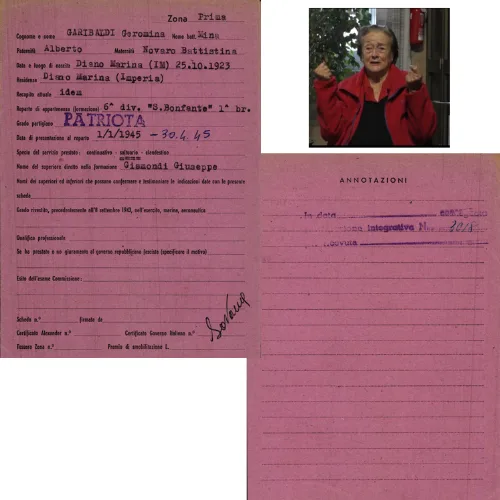 Zona Prima
Cognome e nome GARIBALDI Geromina Nome batt. Mina
Paternità Alberto Maternità Novaro Battistina
Data e luogo di nascita Diano Marina (IM) 25.10.1923
Residenza Diano Marina (Imperia)
Recapito attuale idem
Reparto di appartenenza (formazione) 6^ div. "S.Bonfante" 1^ br.
Grado partigiano PATRIOTA
Data di presentazione al reparto 1/1/1945 - 30.4.45
Specie del servizio prestato: continuativo - saltuario - clandestino
Nome del superiore diretto nella formazione Gismondi Giuseppe
Nomi dei superiori ed inferiori che possono confermare e testimoniare le indicazioni date con la presente
scheda
Grado rivestito, precedentemente all'8 settembre 1943, nell'esercito, marina, aeronautica
Qualifica professionale
Se ha prestato o no giuramento al governo repubblicano fascista (specificare il motivo)
Esito dell'esame Commissione:
Scheda n.° firmata da
Certificato Alexander n.° Certificato Governo Italiano n.°
Tessera Zona n.° Premio di smobilitazione L.
ANNOTAZIONI
In data
integrativa N.